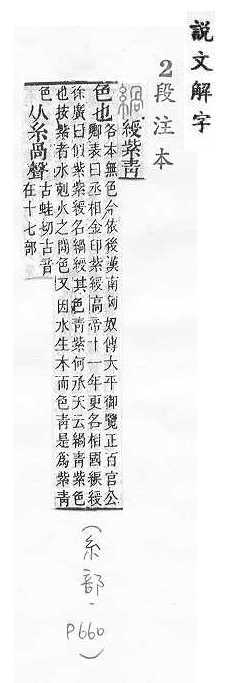 說文解字
2段注本
緺 綬紫青
色也 各本無色今依後漢南匈奴傳大平御覽正百官公
卿表曰丞相金印紫綬高帝十一年更名相國綠綬
徐廣曰似紫紫綬名緺綬其色青紫何承天云緺青紫色
也按紫者水剋火之閒色又因水生木而色青是爲紫青
色 从糸咼聲 古蛙切古音
在十七部
(糸部, P660)